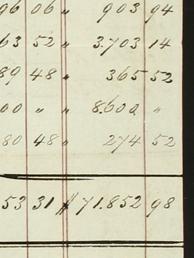 96 06 " 903 94
63 52 " 3.703 14
89 48 " 365 52
00 " " 8.600 "
80 48 " 274 52
53 31 $ 71.852 98